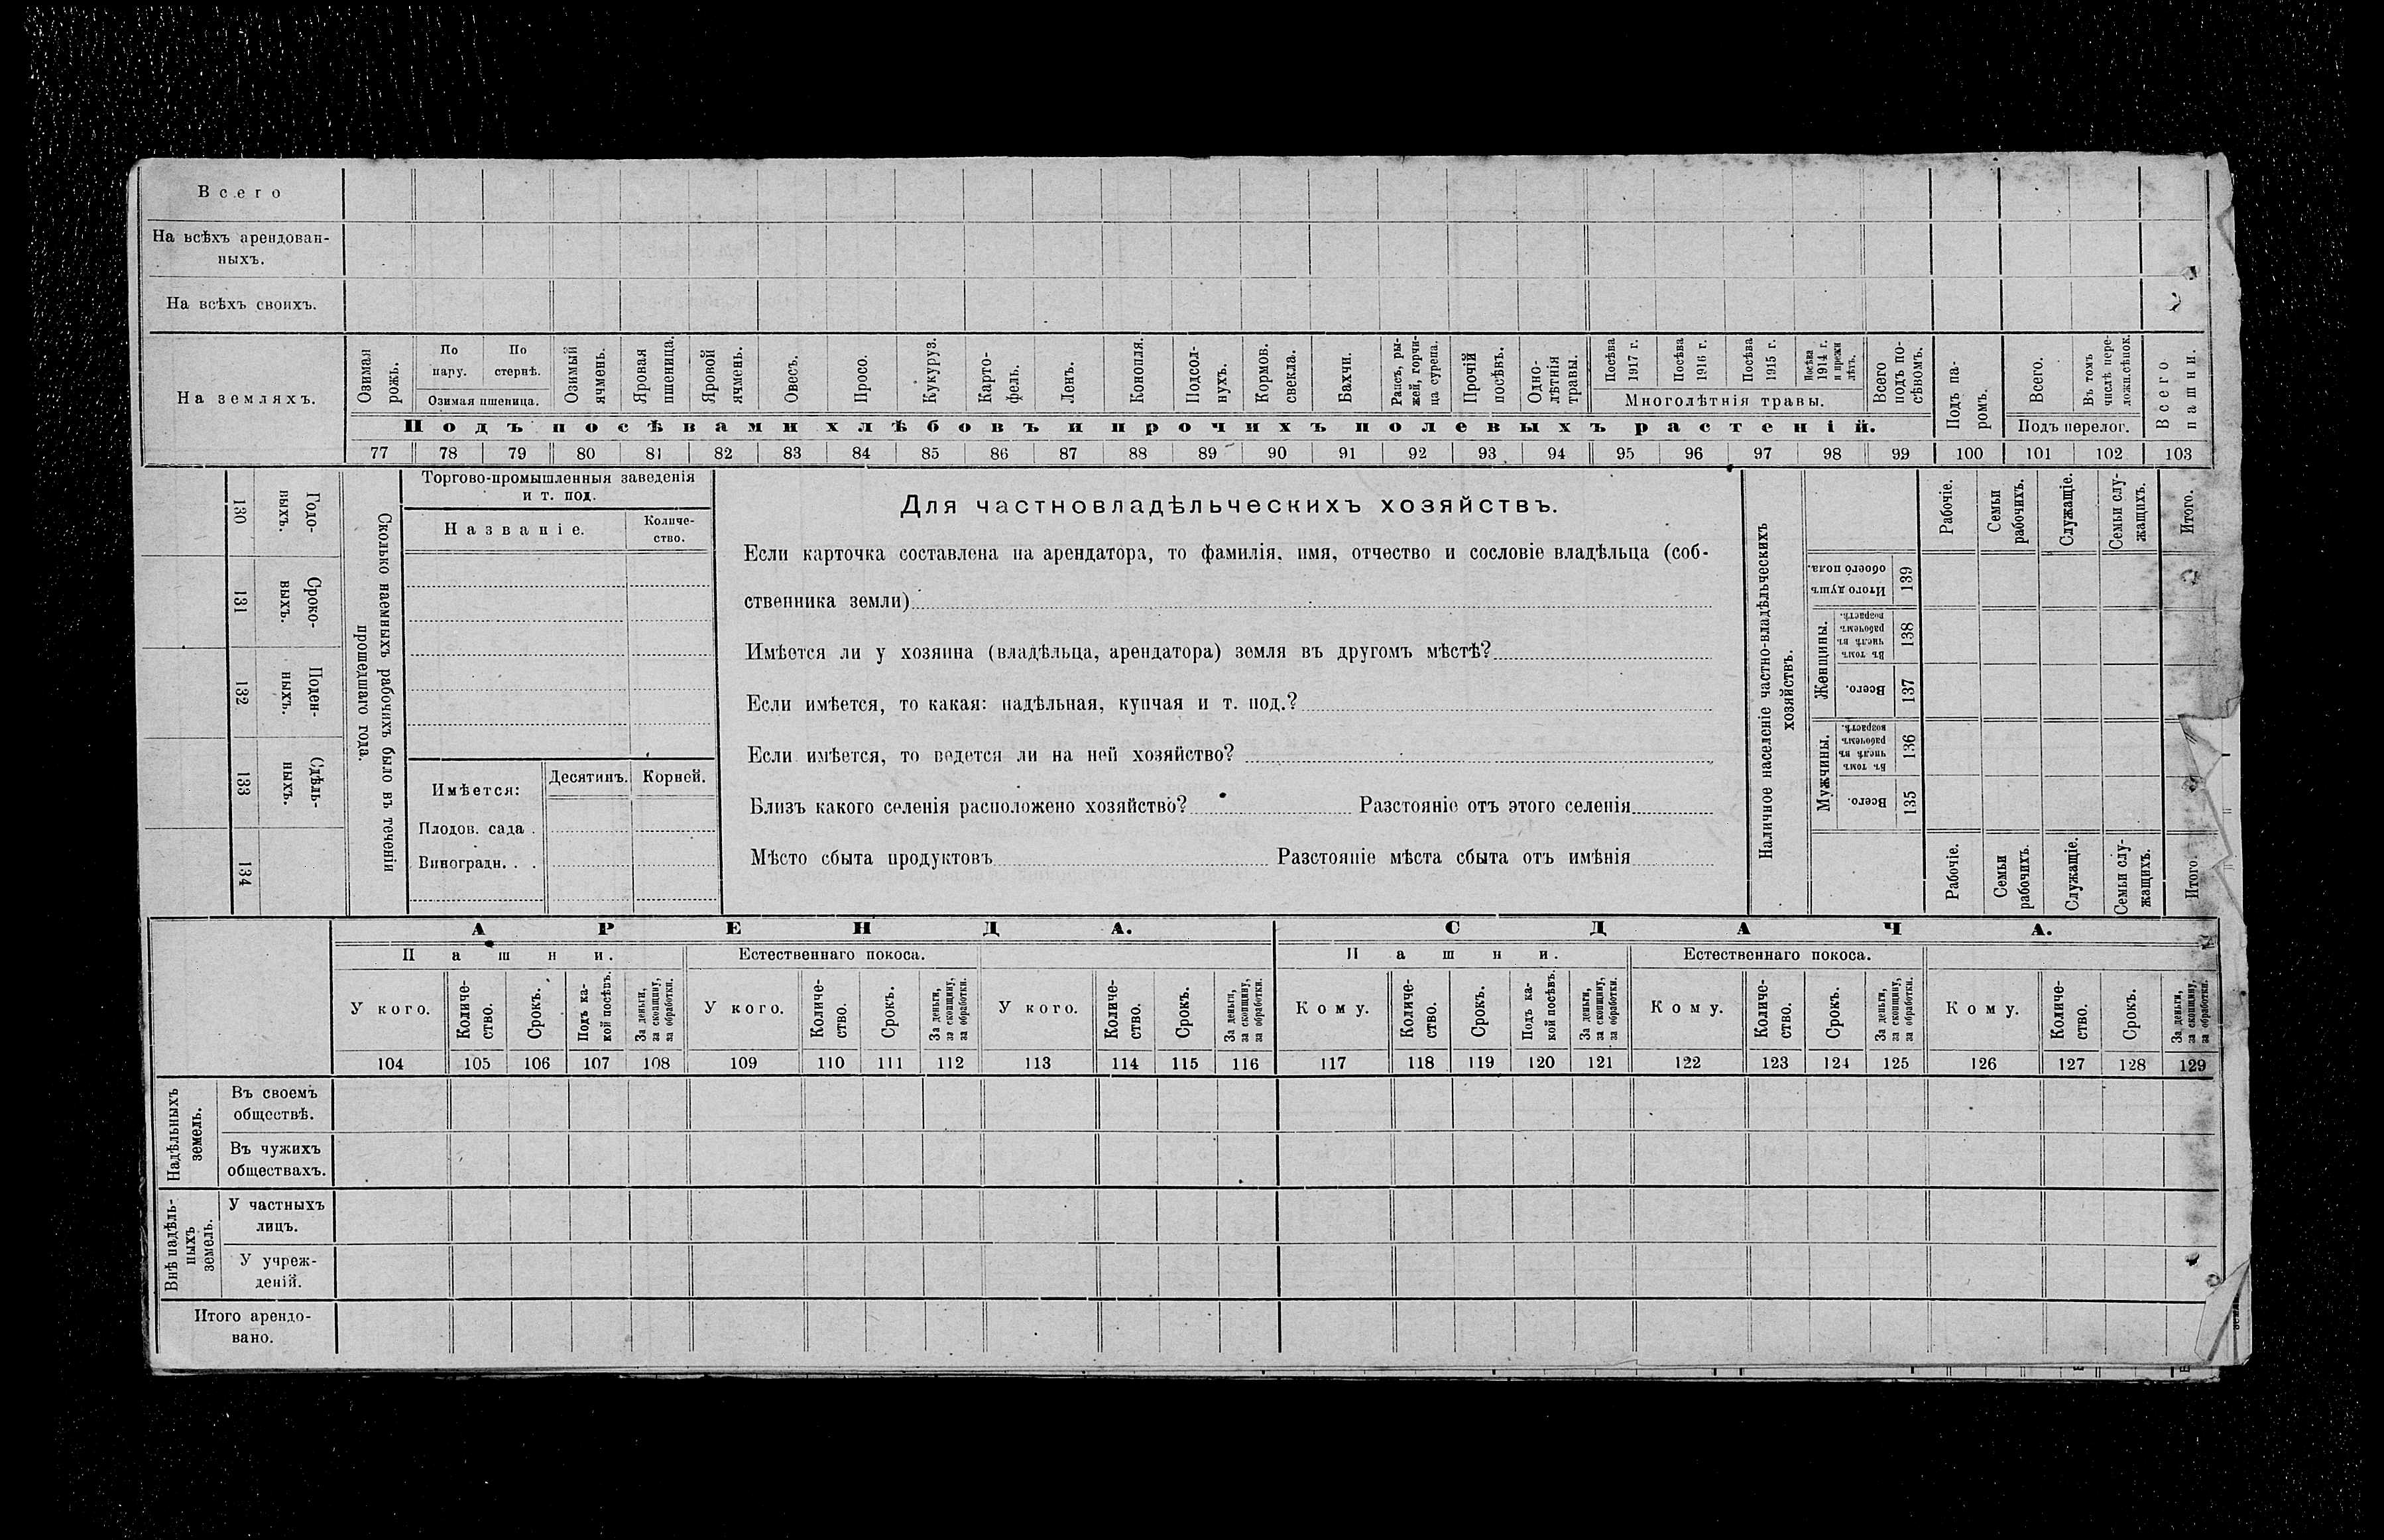 Всего
На всѣхъ арендован-
ныхъ.
На всѣхъ своихъ.
На земляхъ.
Озимая
рожь.
По
пару.
По
стернѣ.
Озимая пшеница.
Озимый
ячмень.
Яровая
пшеница.
Яровой
ячмень.
Овесъ.
Просо.
Кукуруз.
Карто-
фель.
Ленъ.
Конопля.
Подсол-
нухъ.
Кормов.
свекла.
Бахчи.
Рапсъ, ры-
жей, горчи-
ца сурепа.
Прочій
посѣвъ.
Одно-
лѣтнія
травы.
Посѣва
1917 г.
Посѣва
1916 г.
Посѣва
1915 г.
Посѣва
1914 г.
и прежн
лѣтъ.
Многолѣтнія травы.
Всего
подъ по-
сѣвомъ.
Подъ посѣвами хлѣбовъ и прочихъ полевыхъ растеній.
Подъ па-
ромъ.
Всего.
Въ томъ
числѣ пере-
ложн.сѣнок.
Подъ перелог.
Всего
пашни.
77 78 79 80 81 82 83 84 85 86 87 88 89 90 91 92 93 94 95 96 97 98 99 100 101 102 103
Сколько наемныхъ рабочихъ было въ теченіи
прошедшаго года.
Годо-
выхъ.
130
Сроко-
выхъ.
131
Поден-
ныхъ.
132
Сдѣль-
ныхъ.
133
134
Торгово-промышленныя заведенія
и т. под.
Названіе.
Количе-
ство.
Имѣется:
Десятинъ.
Корней.
Плодов. сада .
Виноградн. . .
Для частновладѣльческихъ хозяйствъ.
Если карточка составлена на арендатора, то фамилія, имя, отчество и сословіе владѣльца (соб-
ственника земли)
Имѣется ли у хозяина (владѣльца, арендатора) земля въ другомъ мѣстѣ?
Если имѣется, то какая: надѣльная, купчая и т. под.?
Если имѣется, то ведется ли на ней хозяйство?
Близъ какого селенія расположено хозяйство? Разстояніе отъ этого селенія
Мѣсто сбыта продуктовъ Разстояніе мѣста сбыта отъ имѣнія
Наличное населеніе частно-владѣльческихъ
хозяйствъ.
Рабочіе.
Семьи
рабочихъ.
Служащіе.
Семьи слу-
жащихъ.
Итого.
Итого душъ
обоего пола.
139
Женщины.
Въ томъ
числѣ въ
рабочемъ
возрастѣ.
138
Всего.
137
Мужчины.
Въ томъ
числѣ въ
рабочемъ
возрастѣ.
136
Всего.
135
Рабочіе.
Семьи
рабочихъ.
Служащіе.
Семьи слу-
жащихъ.
Итого.
АРЕНДА.
СДАЧА.
Пашни.
Естественнаго покоса.
Пашни.
Естественнаго покоса.
У кого.
Количе-
ство.
Срокъ.
Подъ ка-
кой посѣвъ.
За деньги,
за скопщину,
за обработки.
У кого.
Количе-
ство.
Срокъ.
За деньги,
за скопщину,
за обработки.
У кого.
Количе-
ство.
Срокъ.
За деньги,
за скопщину,
за обработки.
Кому.
Количе-
ство.
Срокъ.
Подъ ка-
кой посѣвъ.
За деньги,
за скопщину,
за обработки.
Кому.
Количе-
ство.
Срокъ.
За деньги,
за скопщину,
за обработки.
Кому.
Количе-
ство.
Срокъ.
За деньги,
за скопщину,
за обработки.
104 105 106 107 108 109 110 111 112 113 114 115 116 117 118 119 120 121 122 123 124 125 126 127 128 129
Надѣльныхъ
земель.
Въ своемъ
обществѣ.
Въ чужихъ
обществахъ.
Внѣ надѣль-
ныхъ
земель.
У частныхъ
лицъ.
У учреж-
деній.
Итого арендо-
вано.